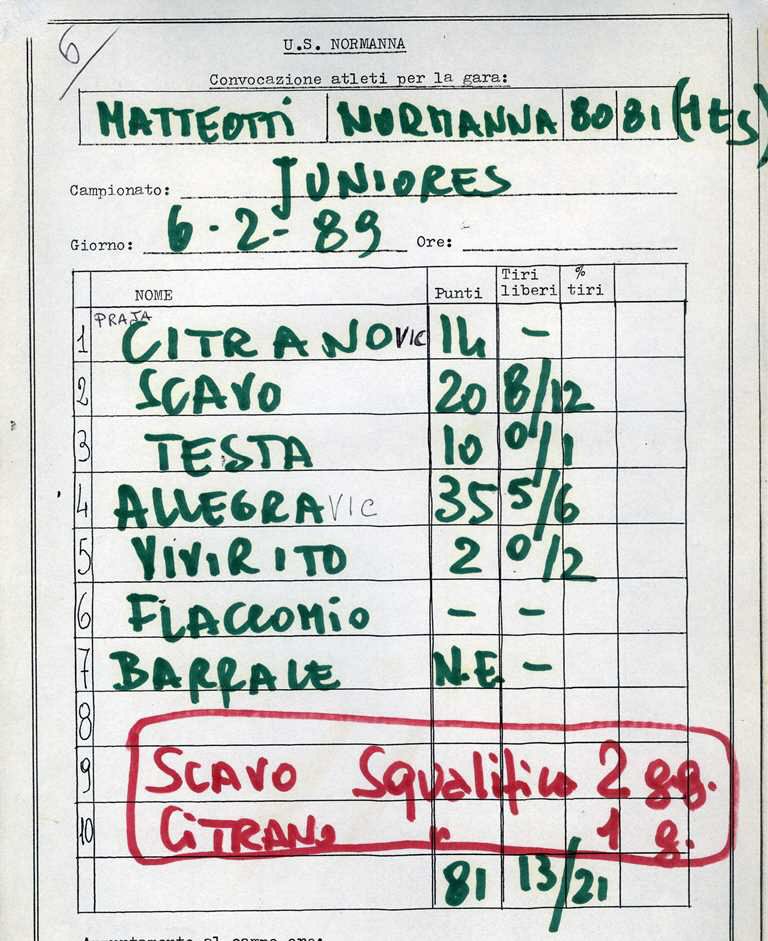 6/
U.S. NORMANNA
Convocazione atleti per la gara:
MATTEOTTI NORMANNA 80 81 (1ts)
Campionato: JUNIORES
Giorno: 6-2-89 Ore:
NOME Punti Tiri liberi % tiri
PRAJA
1 CITRANO VIC 14 -
2 SCAVO 20 8/12
3 TESTA 10 0/1
4 ALLEGRA VIC 35 5/6
5 VIVIRITO 2 0/2
6 FLACCOMIO - -
7 BARRALE N.E. -
8
9 SCAVO Squalifica 2 gg.
10 CITRANO " 1 g.
81 13/21